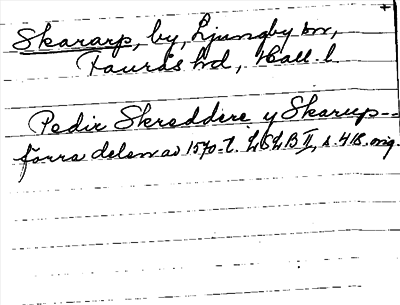 Skararp, by, Ljungby sn,
Faurås hd, Hall. l
Pedir Skreddere y Skarup--
förra delen av 1570-t. LSLB II, s. 418. orig.